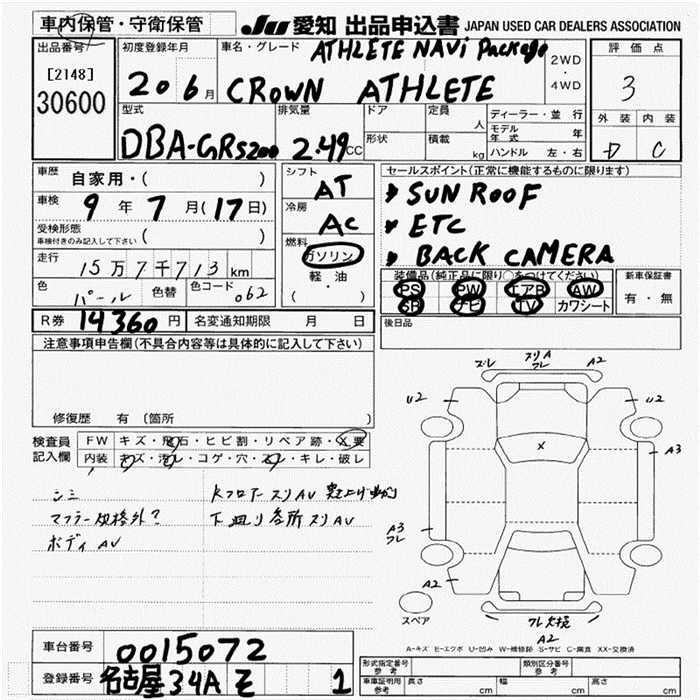 車内保管・守衛保管
JU 愛知 出品申込書 JAPAN USED CAR DEALERS ASSOCIATION
出品番号
[2148]
30600
初度登録年月
20 6月
車名・グレード
ATHLETE NAVi Package
CROWN ATHLETE
2WD
・
4WD
評価点
3
外装 内装
D C
型式
DBA-GRS200
排気量
2.49CC
ドア
形状
定員 人
積載 kg
ディーラー・並行
モデル年式 年
ハンドル 左・右
車歴
自家用・( )
車検 9年 7月(17日)
受検形態
車検付きのみ記入して下さい ( )
走行 15万7千713km
色 パール 色替 色コード 062
シフト AT
冷房 AC
燃料
ガソリン
軽・油
( )
セールスポイント(正常に機能するものに限ります)
SUN ROOF
ETC
BACK CAMERA
装備品(純正品に限り○をつけてください)
PS PW エアB AW
SR ナビ TV カワシート
新車保証書
有・無
R券 14360円 名変通知期限 月 日
後日品
注意事項申告欄(不具合内容等は具体的に記入して下さい)
修復歴 有 (箇所 )
検査員
記入欄
FW キズ・飛石・ヒビ割・リペア跡・X要
内装 キズ・汚れ・コゲ・穴・スレ・キレ・破レ
シミ
マフラー規格外?
ボディ AV
下廻り各所スリAV
ズレ スリA フレ A2
U2 U2
X
A3
A3 フレ
A2
スペア
A2
A-キズ E-エクボ U-凹み W-補修跡 S-サビ C-腐食 XX-交換済
車台番号 0015072
登録番号 名古屋34A モ 1
形式指定番号 参考
類別区分番号 参考
車庫証明用 参考 長さ cm 幅 cm 高さ cm